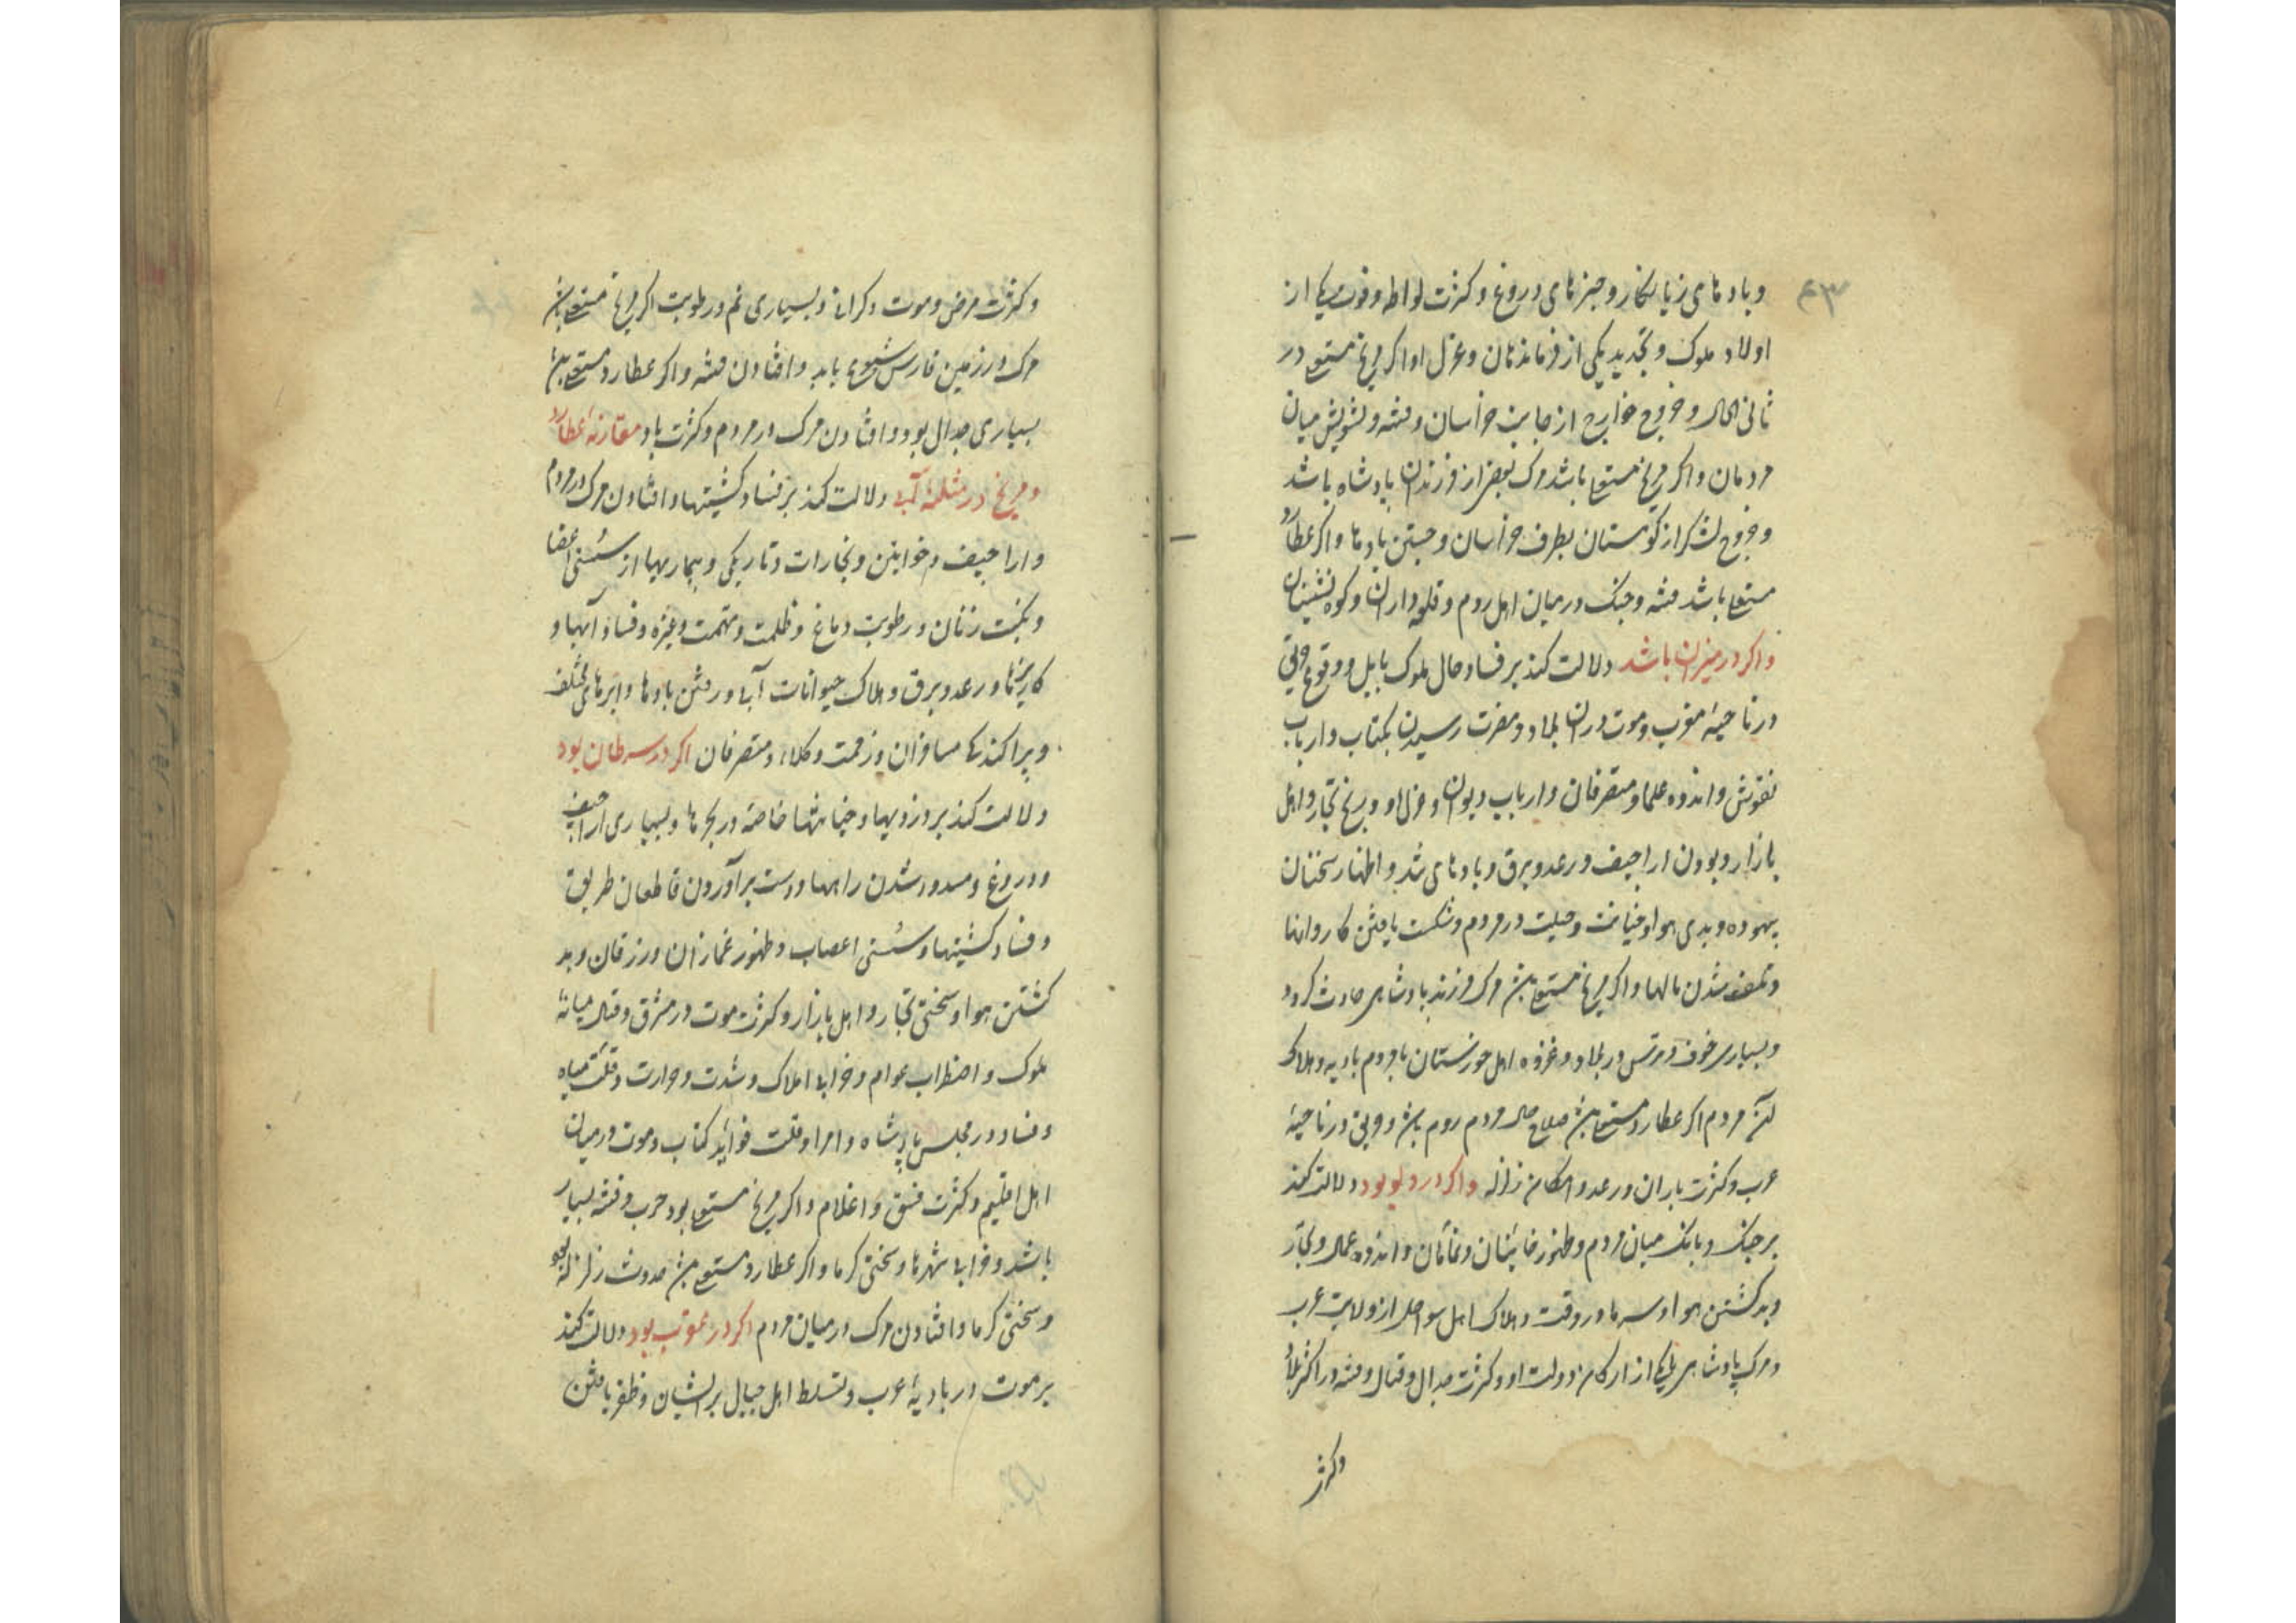 ۴۳
وبادهای زیانکار وخبرهای دروغ وکثرت لواطه وفوت یکی از
اولاد ملوک وتجدید یکی از فرماندهان وعزل او اکر مریخ مستعلی در
ثانی الحال وخروج خوارج از جانب خراسان وفتنه وتشویش میان
مردمان واکر مریخ مستعلی باشد مرک بعضی از فرزندان پادشاه باشد
وخروج لشکر از کوهستان بطرف خراسان وجستن بادها واکر عطارد
مستعلی باشد فتنه وجنک درمیان اهل روم وقلعه داران وکوه نشینان
واکر در میزان باشد دلالت کند بر فساد حال ملوک بابل ووقوع حربی
در ناحیهٔ مغرب وموت دران بلاد ومضرت رسیدن بکتاب وارباب
نقوش واندوه علما ومتصرفان وارباب دیوان وعزل او ورنج تجار واهل
بازار وبودن اراجیف ورعد وبرق وبادهای تند واظهار سخنان
بیهوده وبدی هوا وخیانت وحیلت در مردم وشکست یافتن کاروانها
وتلف شدن مالها واکر مریخ مستعلی بش مرک فرزند پادشاهی حادث کردد
وبسیاری خوف وترس در بلاد وغزوه اهل خوزستان با مردم بادیه وهلاک
اکثر مردم اکر عطارد مستعلی بش صلاح حال مردم روم بش وحربی در ناحیهٔ
عرب وکثرت باران ورعد وامکان زلزله واکر در دلو بود دلالت کند
بر جنک وبانک میان مردم وظهور خائنان ونمامان واندوه عمال وتجار
وبد کشتن هوا وسرما در وقت وهلاک اهل سواحل از ولایت عرب
ومرک پادشاهی یا یکی از ارکان دولت او وکثرت جدال وقتال وفتنه در اکثر بلاد
وکثرت
وکثرت مرض وموت وکرانی وبسیاری نم ورطوبت اکر مریخ مستعلی بش
مرک در زمین فارس شیوع یابد وافتادن فتنه واکر عطارد مستعلی بش
بسیاری جدال بود وافتادن مرک در مردم وکثرت باد مقارنهٔ عطارد
ومریخ در مثلثهٔ آبی دلالت کند بر فساد کشتیها وافتادن مرک در مردم
واراجیف وخواتین وبخارات وتاریکی وبیماریها از سستی اعضا
ونکبت زنان ورطوبت دماغ وظلمت وتهمت وغیره وفساد آبها و
کاریزها ورعد وبرق وهلاک حیوانات آبی ورفتن بادها وابرهای مختلف
وپراکندکی مسافران وزحمت وکلاء ومتصرفان اکر در سرطان بود
دلالت کند بر دزدیها وخیانتها خاصه در بحرها وبسیاری اراجیف
ودروغ ومسدود شدن راهها ودست برآوردن قاطعان طریق
وفساد کشتیها وسستی اعصاب وظهور غمازان ورزقان وبد
کشتن هوا وسختی تجار واهل بازار وکثرت موت در مشرق وقتال میانهٔ
ملوک واضطراب عوام وخرابی املاک وشدت وحرارت وقلت میاه
وفساد در مجلس پادشاه وامرا وقلت فواید کتاب وموت در میان
اهل اقلیم وکثرت فسق واغلام واکر مریخ مستعلی بود حرب وفتنه بسیار
باشد وخرابی شهرها وسختی کرما واکر عطارد مستعلی بش حدوث زلزله بود
وسختی کرما وافتادن مرک در میان مردم اکر در عقرب بود دلالت کند
بر موت در بادیهٔ عرب وتسلط اهل جبال بر ایشان وظفر یافتن